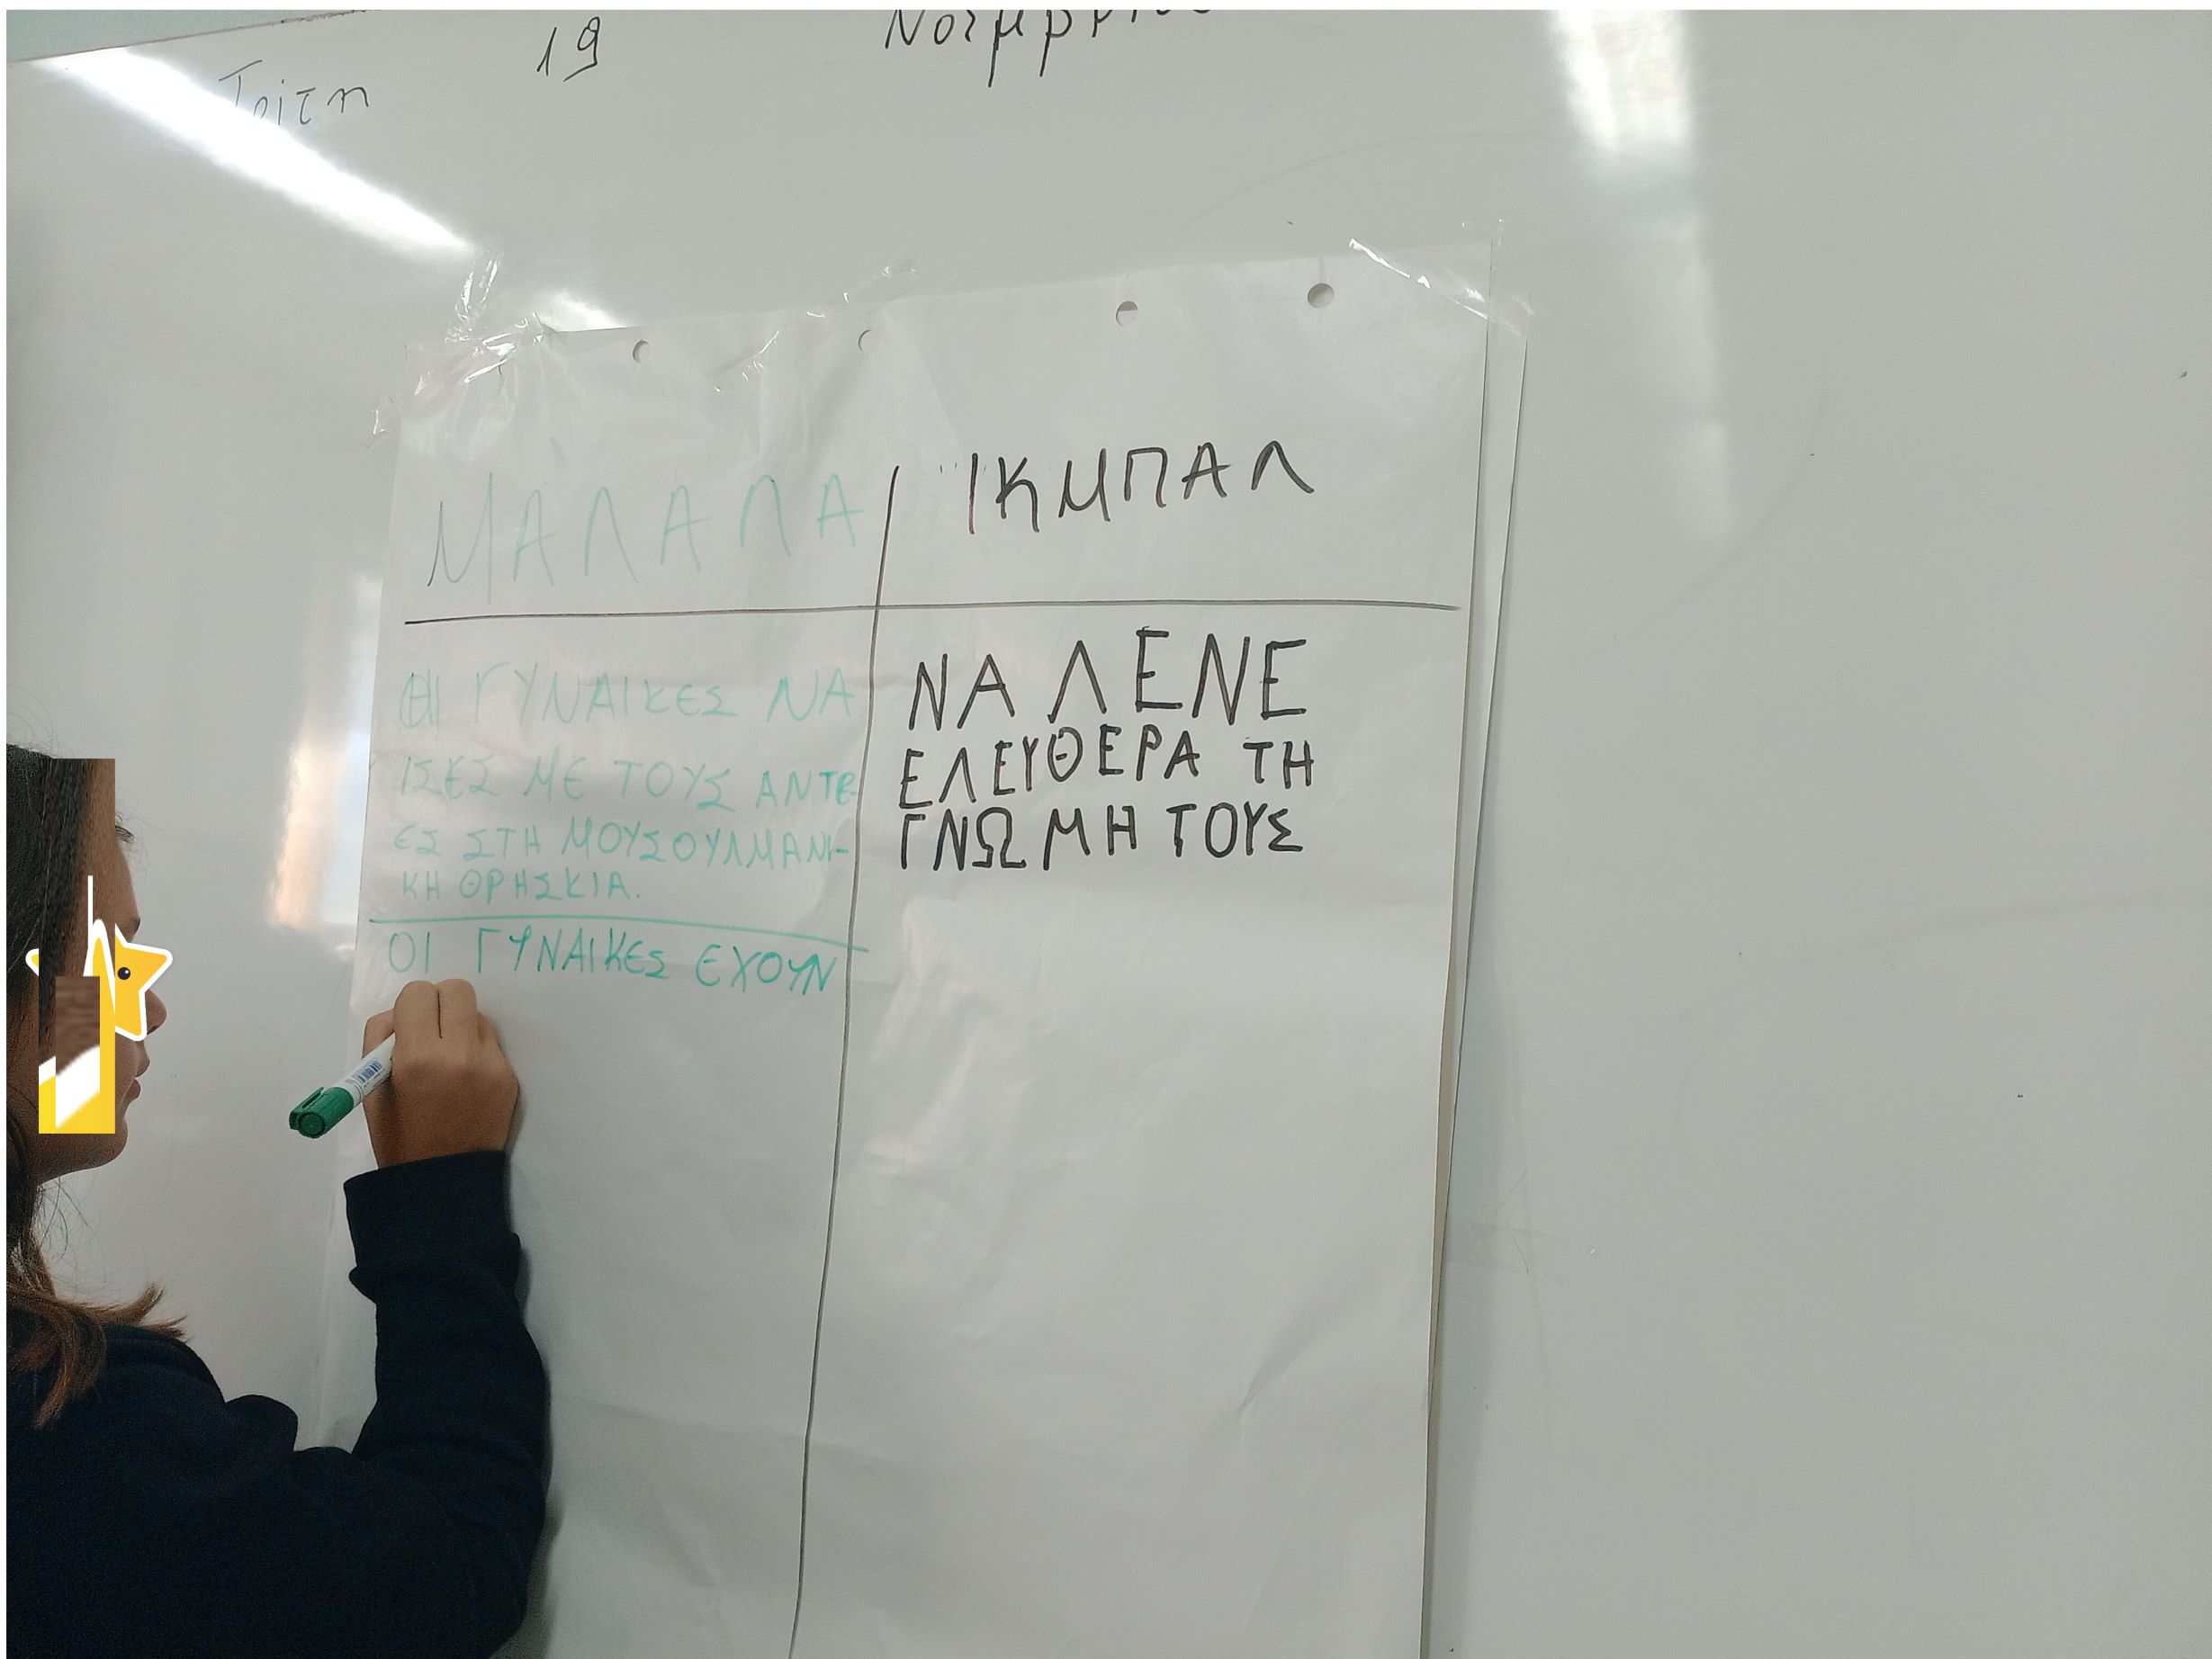 Τρίτη 19
ΜΑΛΑΛΑ ΙΚΜΠΑΛ
ΟΙ ΓΥΝΑΙΚΕΣ ΝΑ
ΙΣΕΣ ΜΕ ΤΟΥΣ ΑΝΤΕ-
ΕΣ ΣΤΗ ΜΟΥΣΟΥΛΜΑΝΙ-
ΚΗ ΘΡΗΣΚΙΑ.
ΟΙ ΓΥΝΑΙΚΕΣ ΕΧΟΥΝ
ΝΑ ΛΕΝΕ
ΕΛΕΥΘΕΡΑ ΤΗ
ΓΝΩΜΗ ΤΟΥΣ